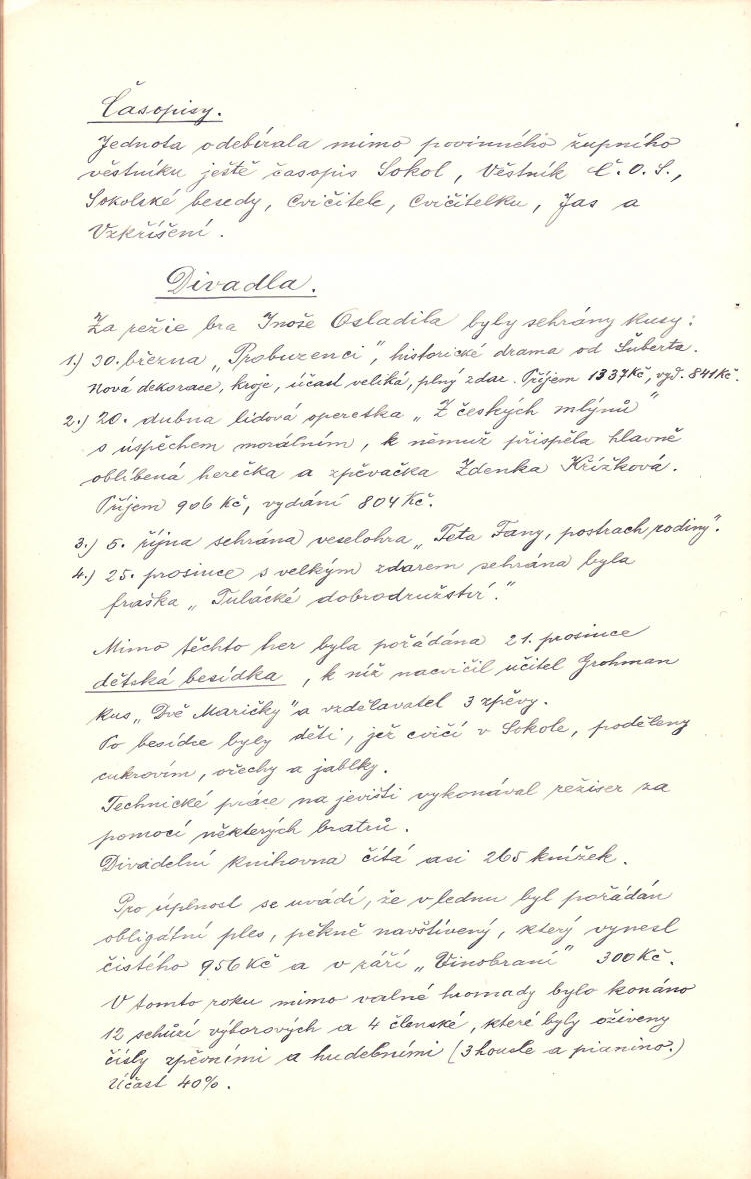 Časopisy.
Jednota odebírala mimo povinného župního
věstníku ještě časopis Sokol, Věstník Č.O.S.,
Sokolské besedy, Cvičitele, Cvičitelku, Jas a
Vzkříšení.
Divadla.
Za režie bra Inoše Osladila byly sehrány kusy:
1.) 30. března „Probuzenci", historické drama od Šuberta.
Nová dekorace, kroje, účast veliká, plný zdar. Příjem 1337 Kč, vyd. 841 Kč.
2.) 20. dubna lidová operetka „Z českých mlýnů"
s úspěchem morálním, k němuž přispěla hlavně
oblíbená herečka a zpěvačka Zdenka Křížková.
Příjem 906 Kč, vydání 804 Kč.
3.) 5. října sehrána veselohra „Teta Fany, postrach rodiny".
4.) 25. prosince s velkým zdarem sehrána byla
fraška „Tulácké dobrodružství."
Mimo těchto her byla pořádána 21. prosince
dětská besídka, k níž nacvičil učitel Grohman
kus „Dvě Maričky" a vzdělavatel 3 zpěvy.
Po besídce byly děti, jež cvičí v Sokole, poděleny
cukrovím, ořechy a jablky.
Technické práce na jevišti vykonával režiser za
pomocí některých bratrů.
Divadelní knihovna čítá asi 265 knížek.
Pro úplnost se uvádí, že v lednu byl pořádán
obligátní ples, pěkně navštívený, který vynesl
čistého 956 Kč a v září „Vinobraní" 300 Kč.
V tomto roku mimo valné hromady bylo konáno
12 schůzí výborových a 4 členské, které byly oživeny
čísly zpěvními a hudebními (3 housle a pianino.)
Účast 40%.